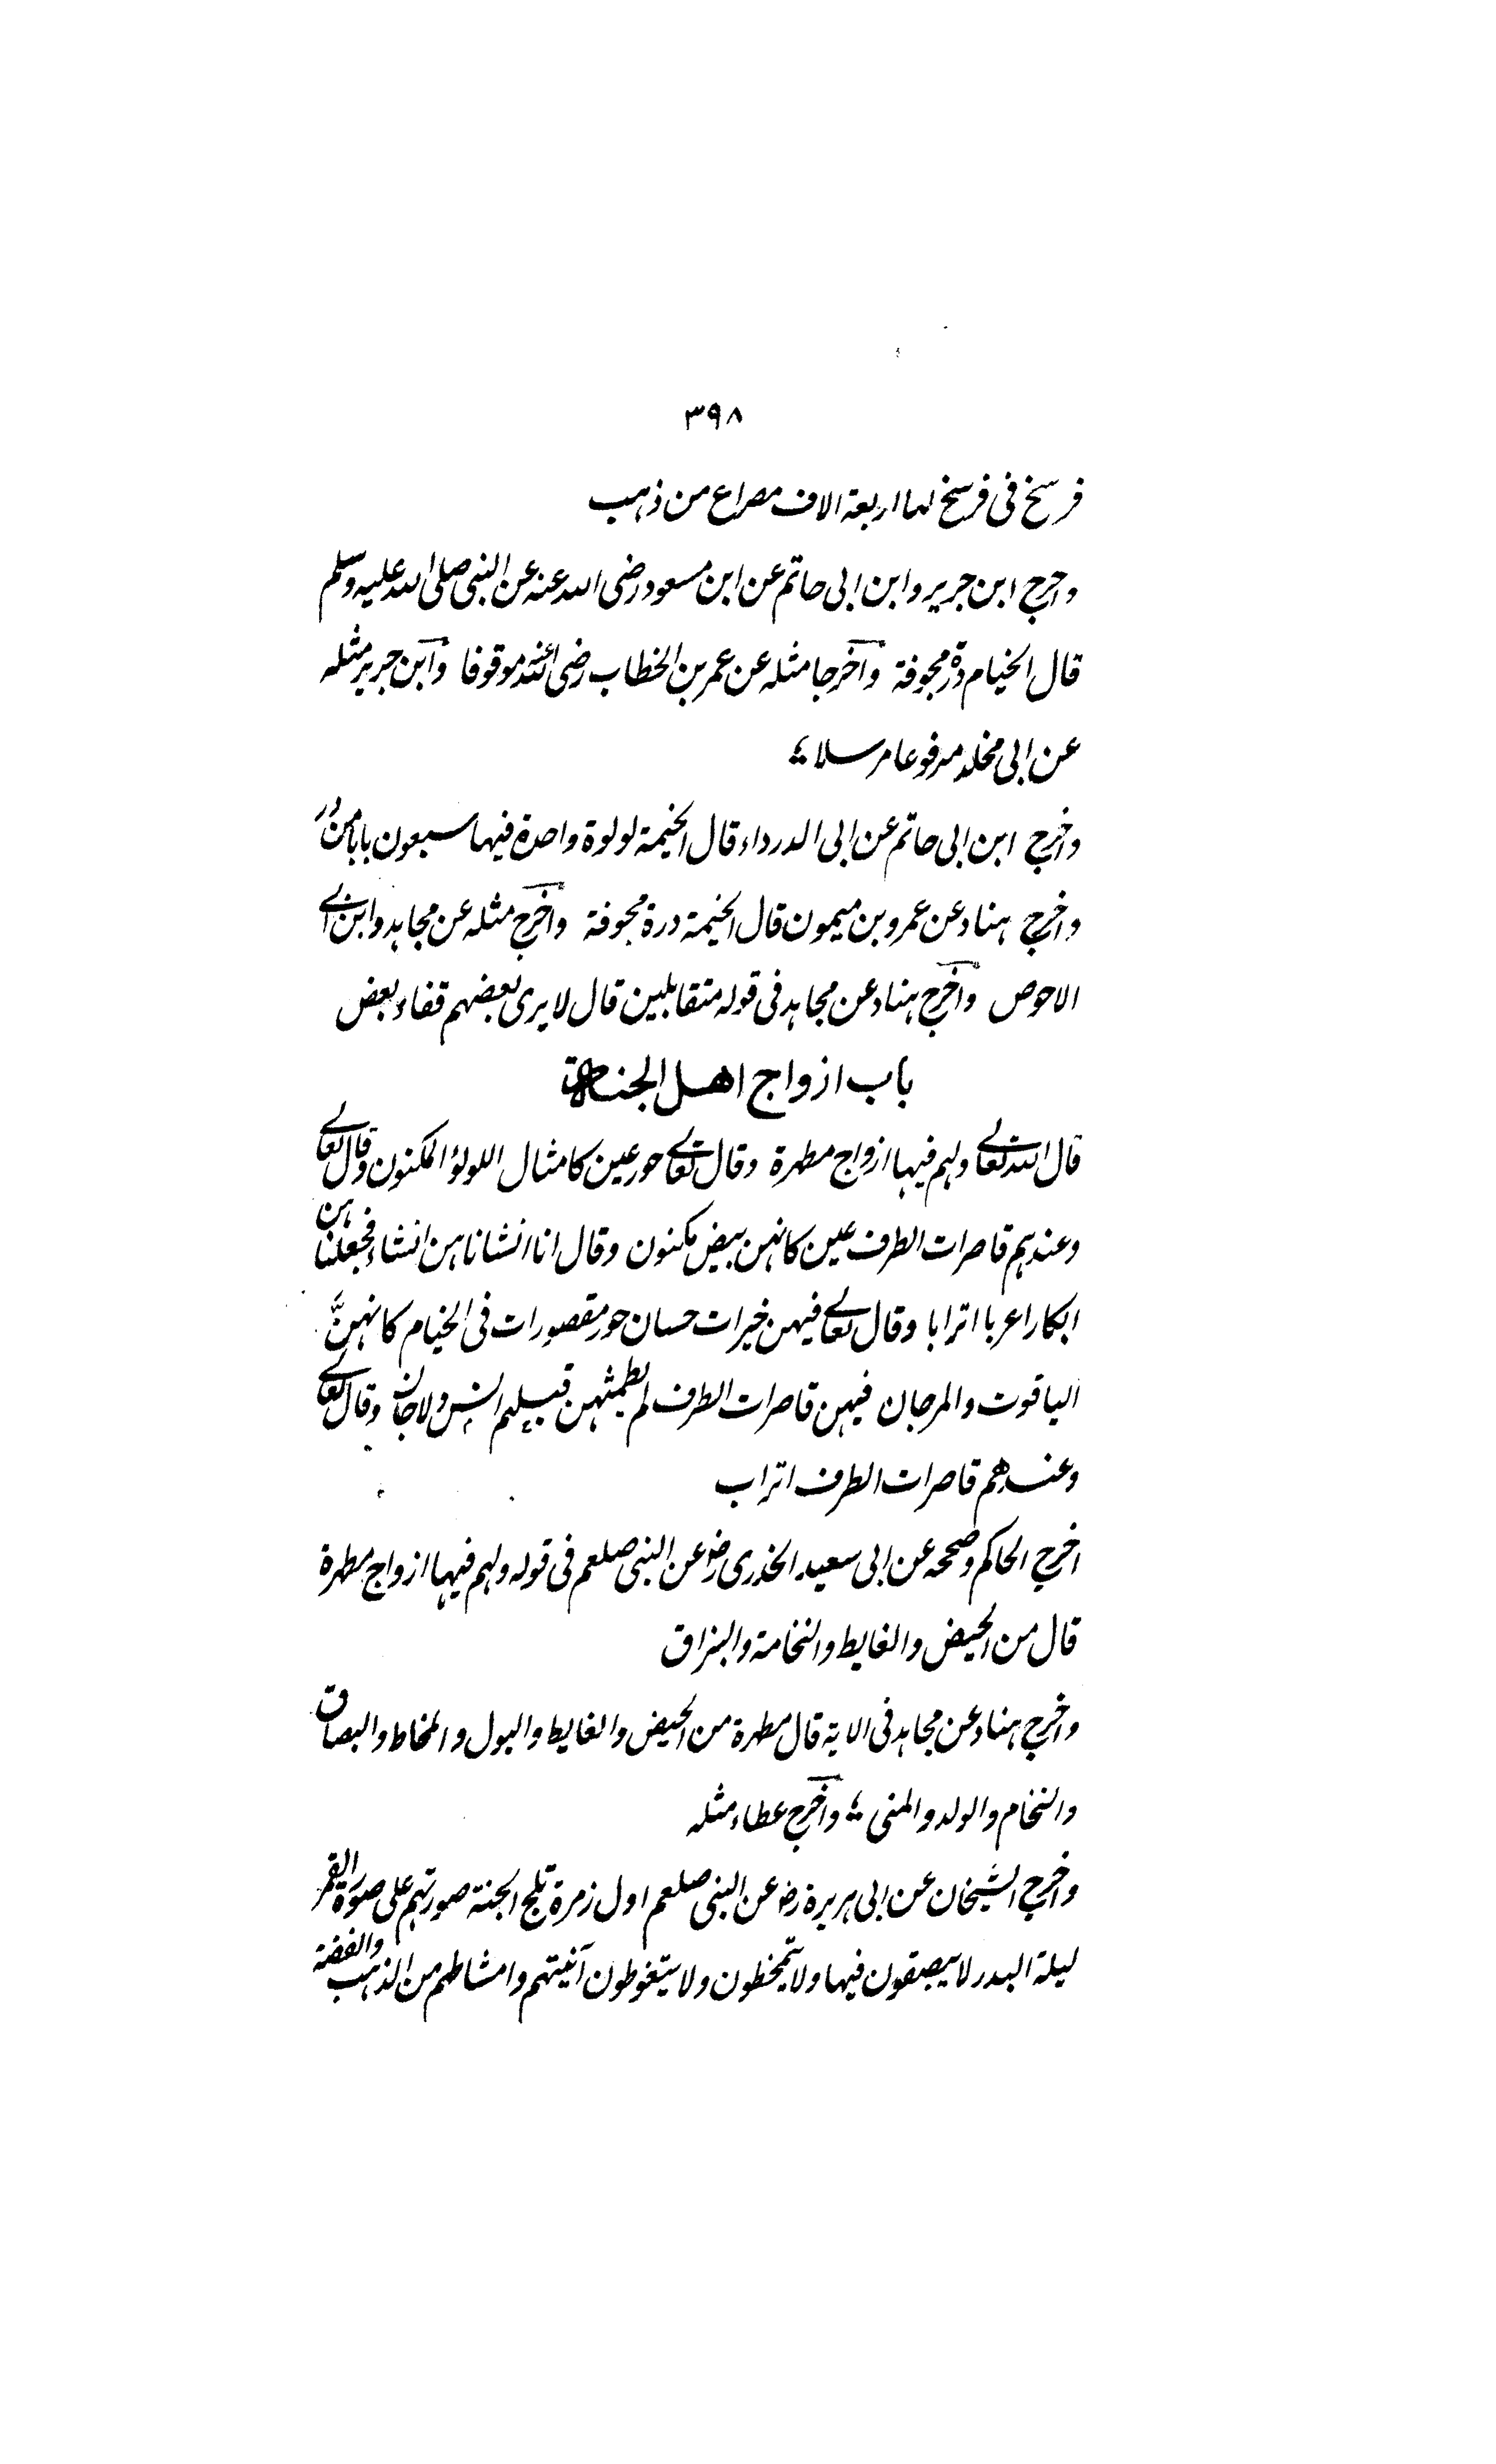 ٣٩٨
فرسخ فى فرسخ لها اربعة الاف مصراع من ذهب
واخرج ابن جرير وابن ابى حاتم عن ابن مسعود رضى الله عنه عن النبى صلى الله عليه وسلم
قال الخيام درّ مجوفة واخرجا مثله عن عمر بن الخطاب رضى الله عنه موقوفا وابن جرير مثله
عن ابى مخلد مرفوعا مرسلا ؞
واخرج ابن ابى حاتم عن ابى الدرداء قال الخيمة لولوة واحدة فيها سبعون بابا من در
واخرج هناد عن عمرو بن ميمون قال الخيمة درة مجوفة واخرج مثله عن مجاهد وابن ابى
الاحوص واخرج هناد عن مجاهد فى قوله متقابلين قال لا يرى بعضهم قفاء بعض
باب ازواج اهل الجنة
قال الله تعالے ولهم فيها ازواج مطهرة وقال تعالے حور عين كامثال اللولؤ المكنون وقال تعالے
وعندهم قاصرات الطرف عين كانهن بيض مكنون وقال انا انشاناهن انشاء فجعلناهن
ابكارا عربا اترابا وقال تعالے فيهن خيرات حسان حور مقصورات فى الخيام كانهنَّ
الياقوت والمرجان فيهن قاصرات الطرف لم يطمثهن قبلهم انس ولا جان وقال تعالے
وعندهم قاصرات الطرف اتراب
اخرج الحاكم وصححه عن ابى سعيد الخدرى رضو عن النبى صلعم فى قوله ولهم فيها ازواج مطهرة
قال من الحيض والغايط والنخامة والبزاق
واخرج هناد عن مجاهد فى الاية قال مطهرة من الحيض والغايط والبول والمخاط والبصاق
والنخام والولد والمنى ؞ واخرج عطاء مثله
واخرج الشيخان عن ابى هريرة رضو عن النبى صلعم اول زمرة تلج الجنة صورتهم على صورة القمر
ليلة البدر لا يبصقون فيها ولا يتمخطون ولا يتغوطون آنيتهم وامشاطهم من الذهب والفضة